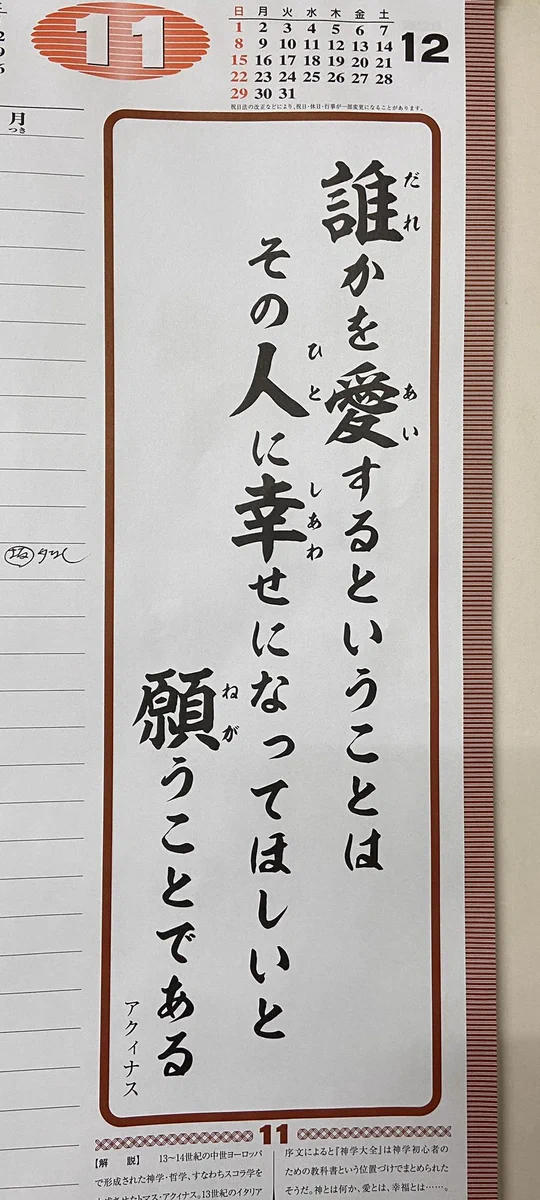 11
日 月 火 水 木 金 土
1 2 3 4 5 6 7
8 9 10 11 12 13 14
15 16 17 18 19 20 21
22 23 24 25 26 27 28
29 30 31
12
祝日法の改正などにより、祝日・休日・行事が一部変更になることがあります。
月
つき
誰かを愛するということは
だれ
あい
その人に幸せになってほしいと
ひと
しあわ
願うことである
ねが
アクィナス
11
【解 説】 13〜14世紀の中世ヨーロッパ
で形成された神学・哲学、すなわちスコラ学を
序文によると『神学大全』は神学初心者の
ための教科書という位置づけでまとめられた
そうだ。神とは何か、愛とは、幸福とは……。